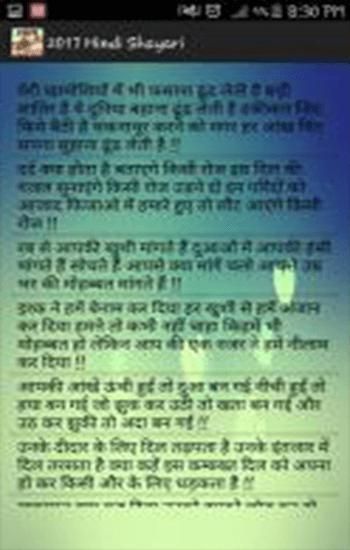 8:30 PM
2017 Hindi Shayari
मेरी खामोशियों में भी फसाना ढूंढ लेती है बड़ी
शातिर है ये दुनिया बहाना ढूंढ लेती है हकीकत जिद
किये बैठी है चकनाचूर करने को मगर हर आंख फिर
सपना सुहाना ढूंढ लेती है !!
दर्द क्या होता है बताएंगे किसी रोज इस दिल की
गजल सुनाएंगे किसी रोज उड़ने दो इन परिंदों को
आजाद फिजाओं में हमारे हुए तो लौट आएंगे किसी
रोज !!
रब से आपकी खुशी मांगते हैं दुआओं में आपकी हंसी
मांगते हैं सोचते हैं आपसे क्या मांगें चलो आपसे उम्र
भर की मोहब्बत मांगते हैं !!
इश्क ने हमें बेनाम कर दिया हर खुशी से हमें अंजान
कर दिया हमने तो कभी नहीं चाहा कि हमें भी
मोहब्बत हो लेकिन आप की एक नजर ने हमें नीलाम
कर दिया !!
आपकी आंखें ऊंची हुई तो दुआ बन गई नीची हुई तो
हया बन गई जो झुक कर उठी तो खता बन गई और
उठ कर झुकी तो अदा बन गई !!
उनके दीदार के लिए दिल तड़पता है उनके इंतजार में
दिल तरसता है क्या कहें इस कम्बख्त दिल को अपना
हो कर किसी और के लिए धड़कता है !!